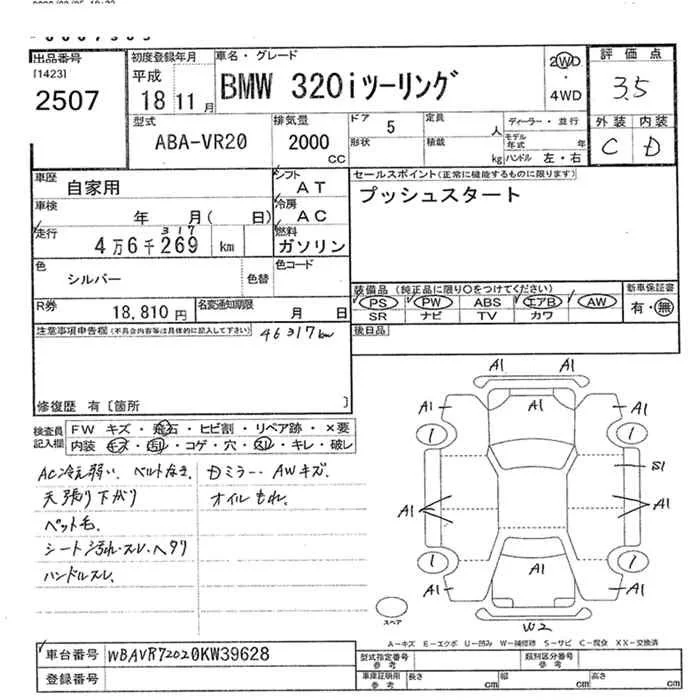 出品番号
[1423]
2507
初度登録年月
平成
18 11 月
車名・グレード
BMW 320iツーリング
2WD
・
4WD
評価点
3.5
外装 内装
C D
型式
ABA-VR20
排気量
2000
CC
ドア 5
形状
定員 人
積載 kg
ディーラー・並行
モデル年式 年
ハンドル 左・右
車歴 自家用
シフト AT
セールスポイント(正常に機能するものに限ります)
プッシュスタート
車検 年 月( 日)
冷房 AC
317
走行 4万6千269 km
燃料 ガソリン
色 シルバー 色替
色コード
装備品 (純正品に限り○をつけてください)
新車保証書
PS PW ABS エアB AW
有・無
SR ナビ TV カワ
R券 18,810 円
名変通知期限 月 日
後日品
注意事項申告欄(不具合内容等は具体的に記入して下さい)
46317km
修復歴 有〔箇所 〕
検査員記入欄
FW キズ・飛石・ヒビ割・リペア跡・×要
内装 キズ・汚れ・コゲ・穴・スレ・キレ・破レ
AC冷え弱い、ベルトなき、
Dミラー・AWキズ、
天張り下がり
オイルもれ、
ペット毛、
シート汚れ・スレ・ヘタリ
ハンドルスレ、
A1 A1
A1 A1 A1
S1
A1 A1
A1
A1 A1
W2
スペア
A-キズ E-エクボ U-凹み W-補修跡 S-サビ C-腐食 XX-交換済
車台番号 WBAVR72020KW39628
登録番号
型式指定番号 参考
類別区分番号 参考
車庫証明用 参考
長さ cm
幅 cm
高さ cm